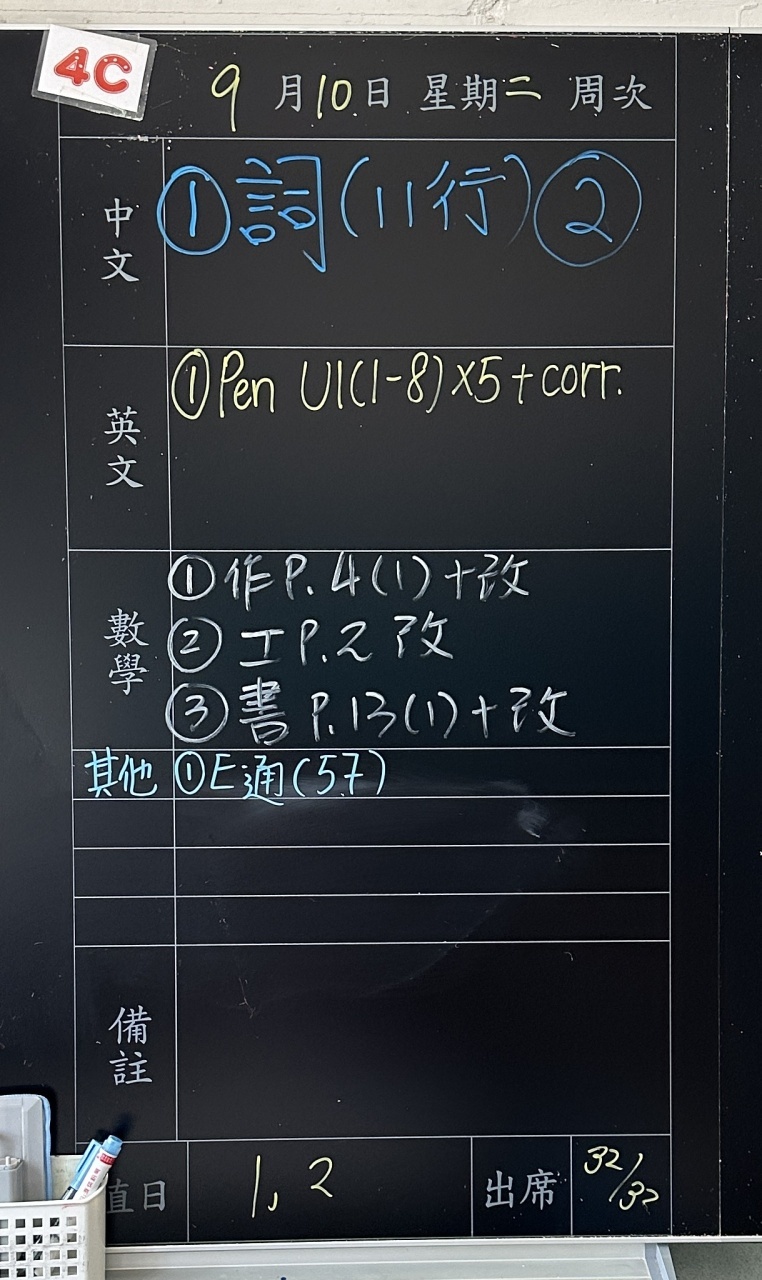 4C
9月10日 星期二 周次
中文 ①詞(11行)②
英文 ①Pen U1(1-8)×5+corr.
數學 ①作P.4(1)+改
②工P.2改
③書P.13(1)+改
其他 ①E通(57)
備註
直日 1, 2 出席 32/32